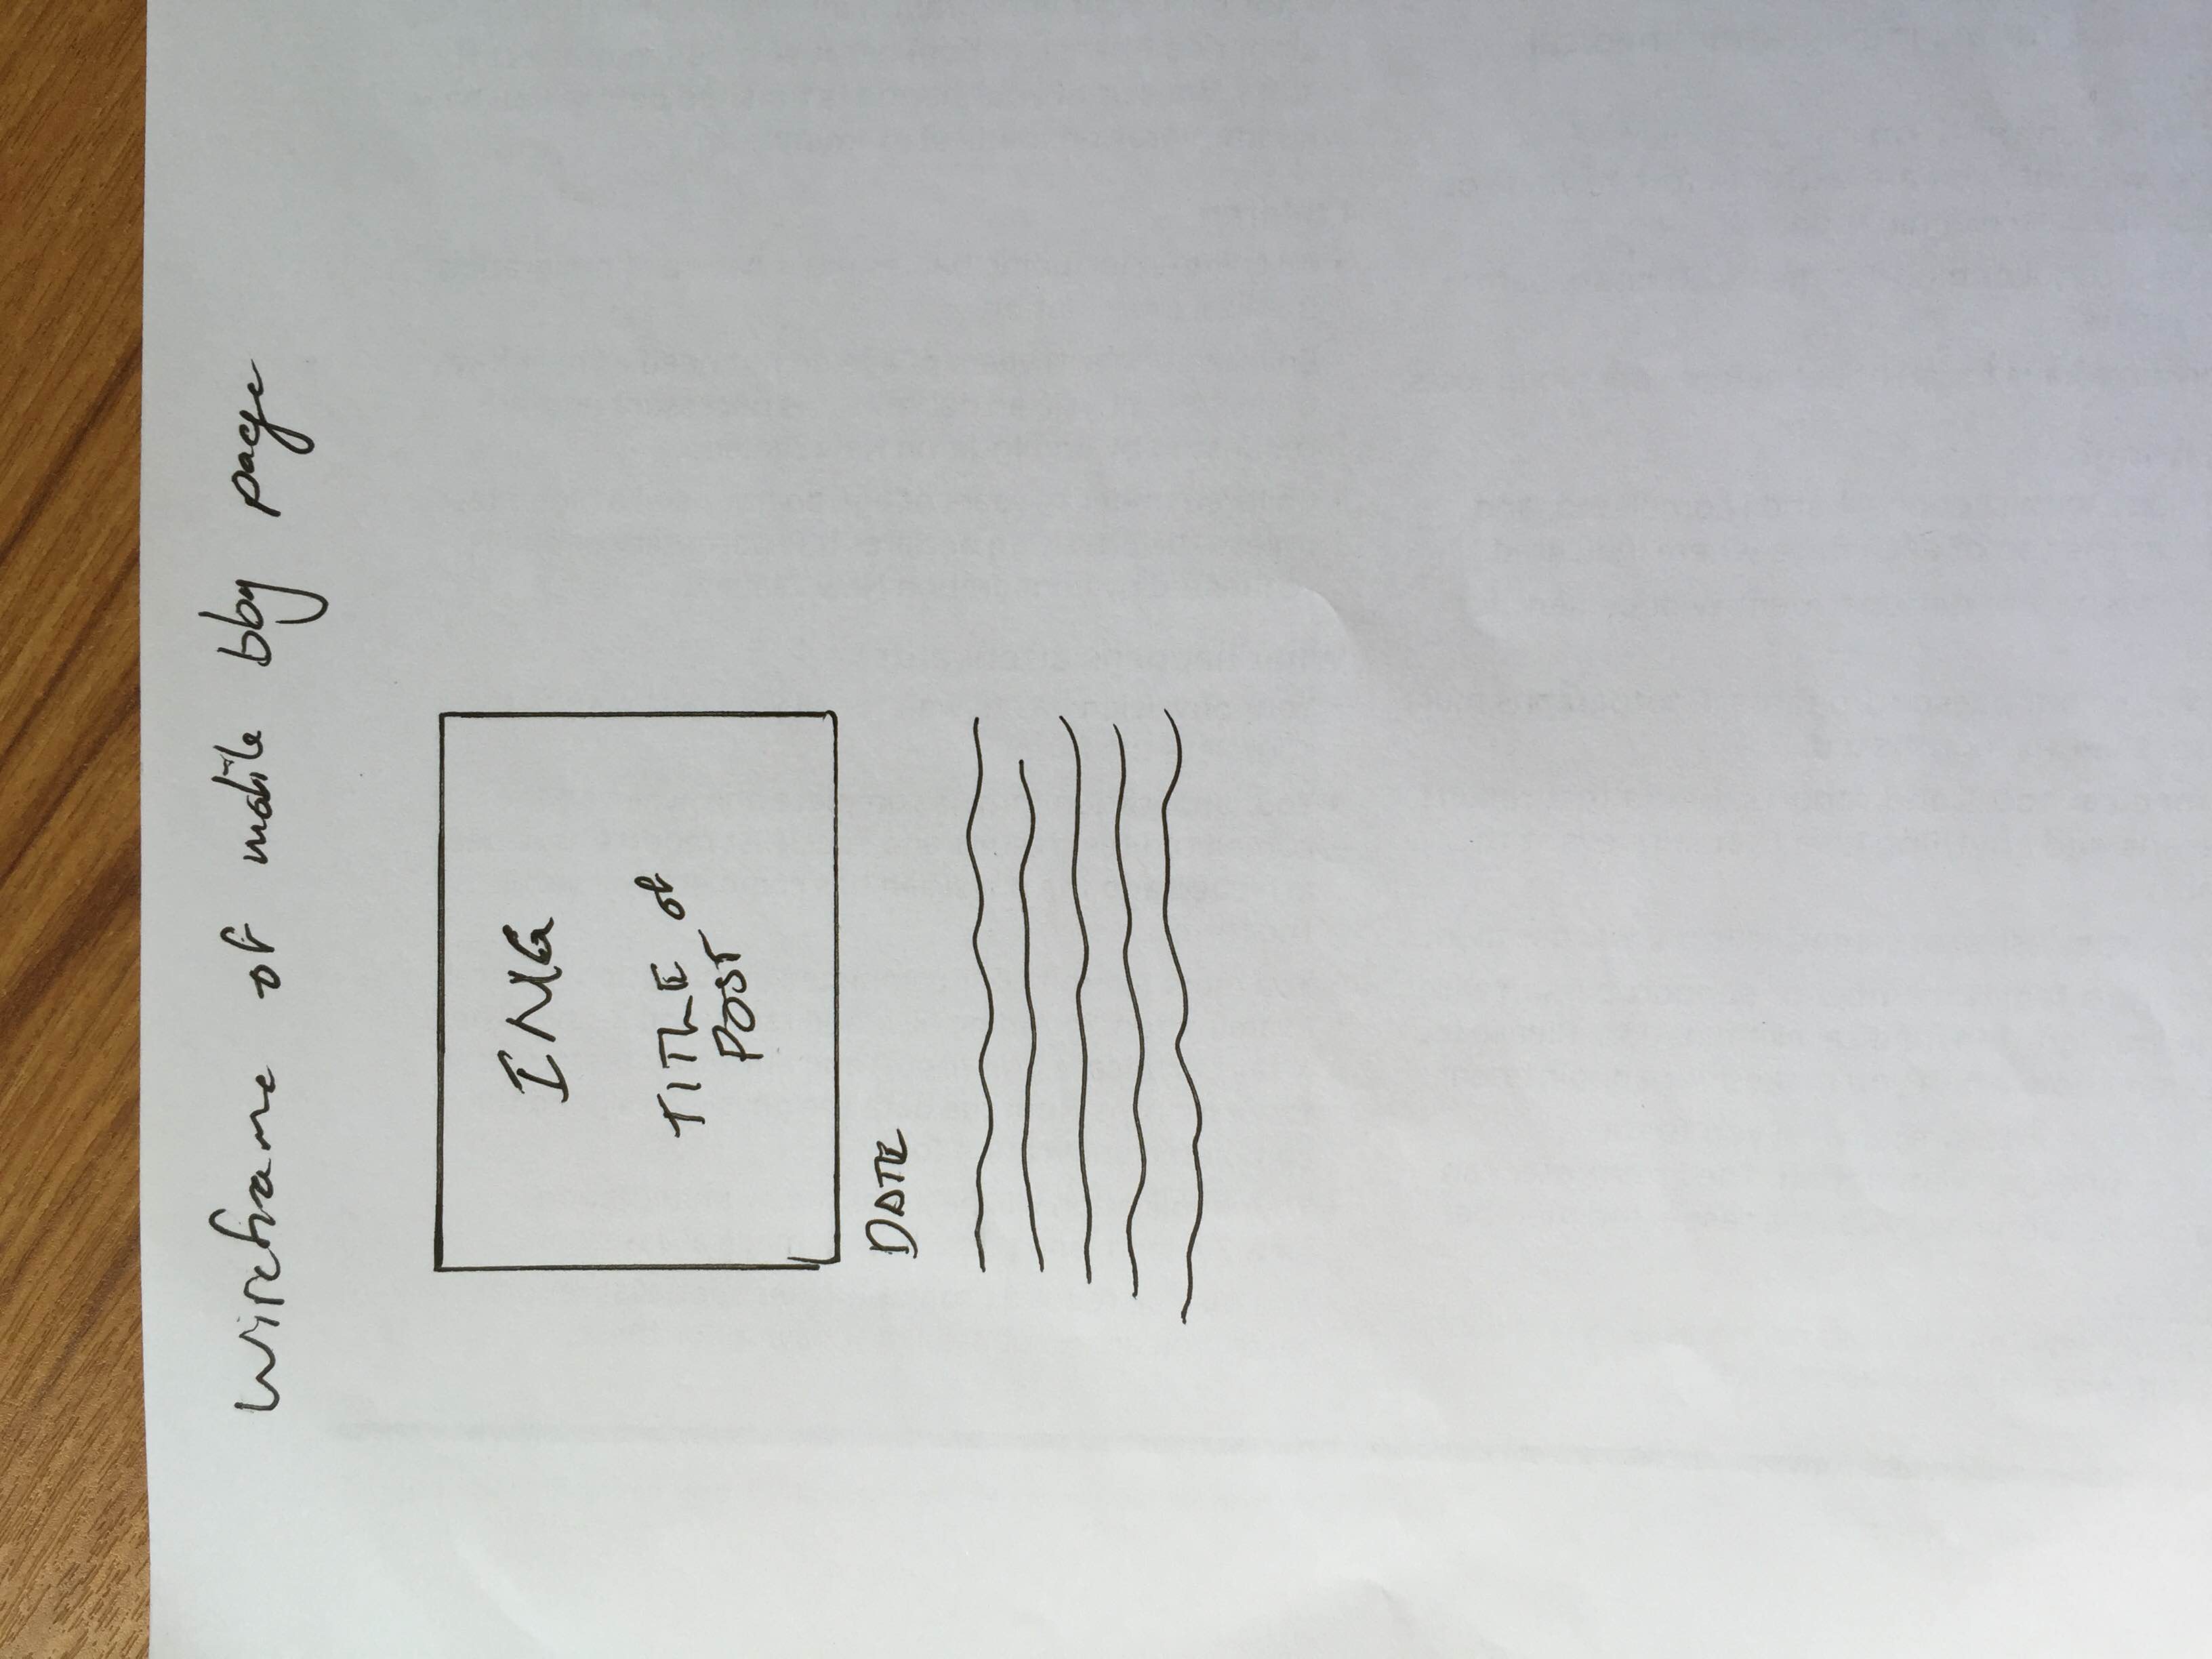 Wireframe of mobile blog page
IMG
TITLE of
POST
DATE